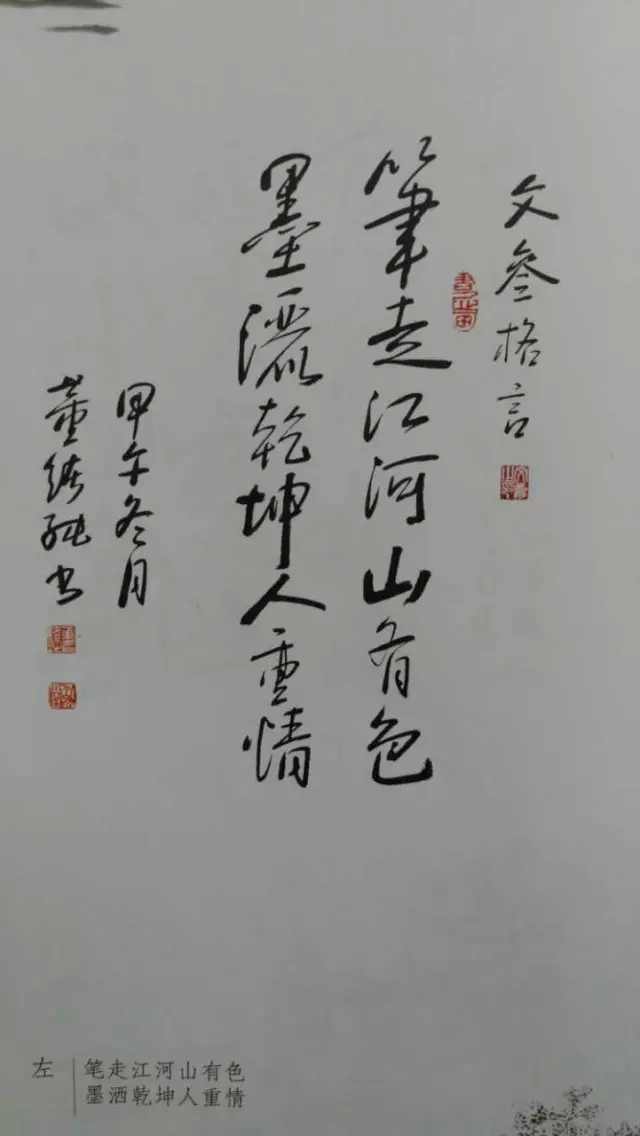 文叁格言
筆走江河山有色
墨灑乾坤人重情
甲午冬月
董
书
左
笔走江河山有色
墨洒乾坤人重情